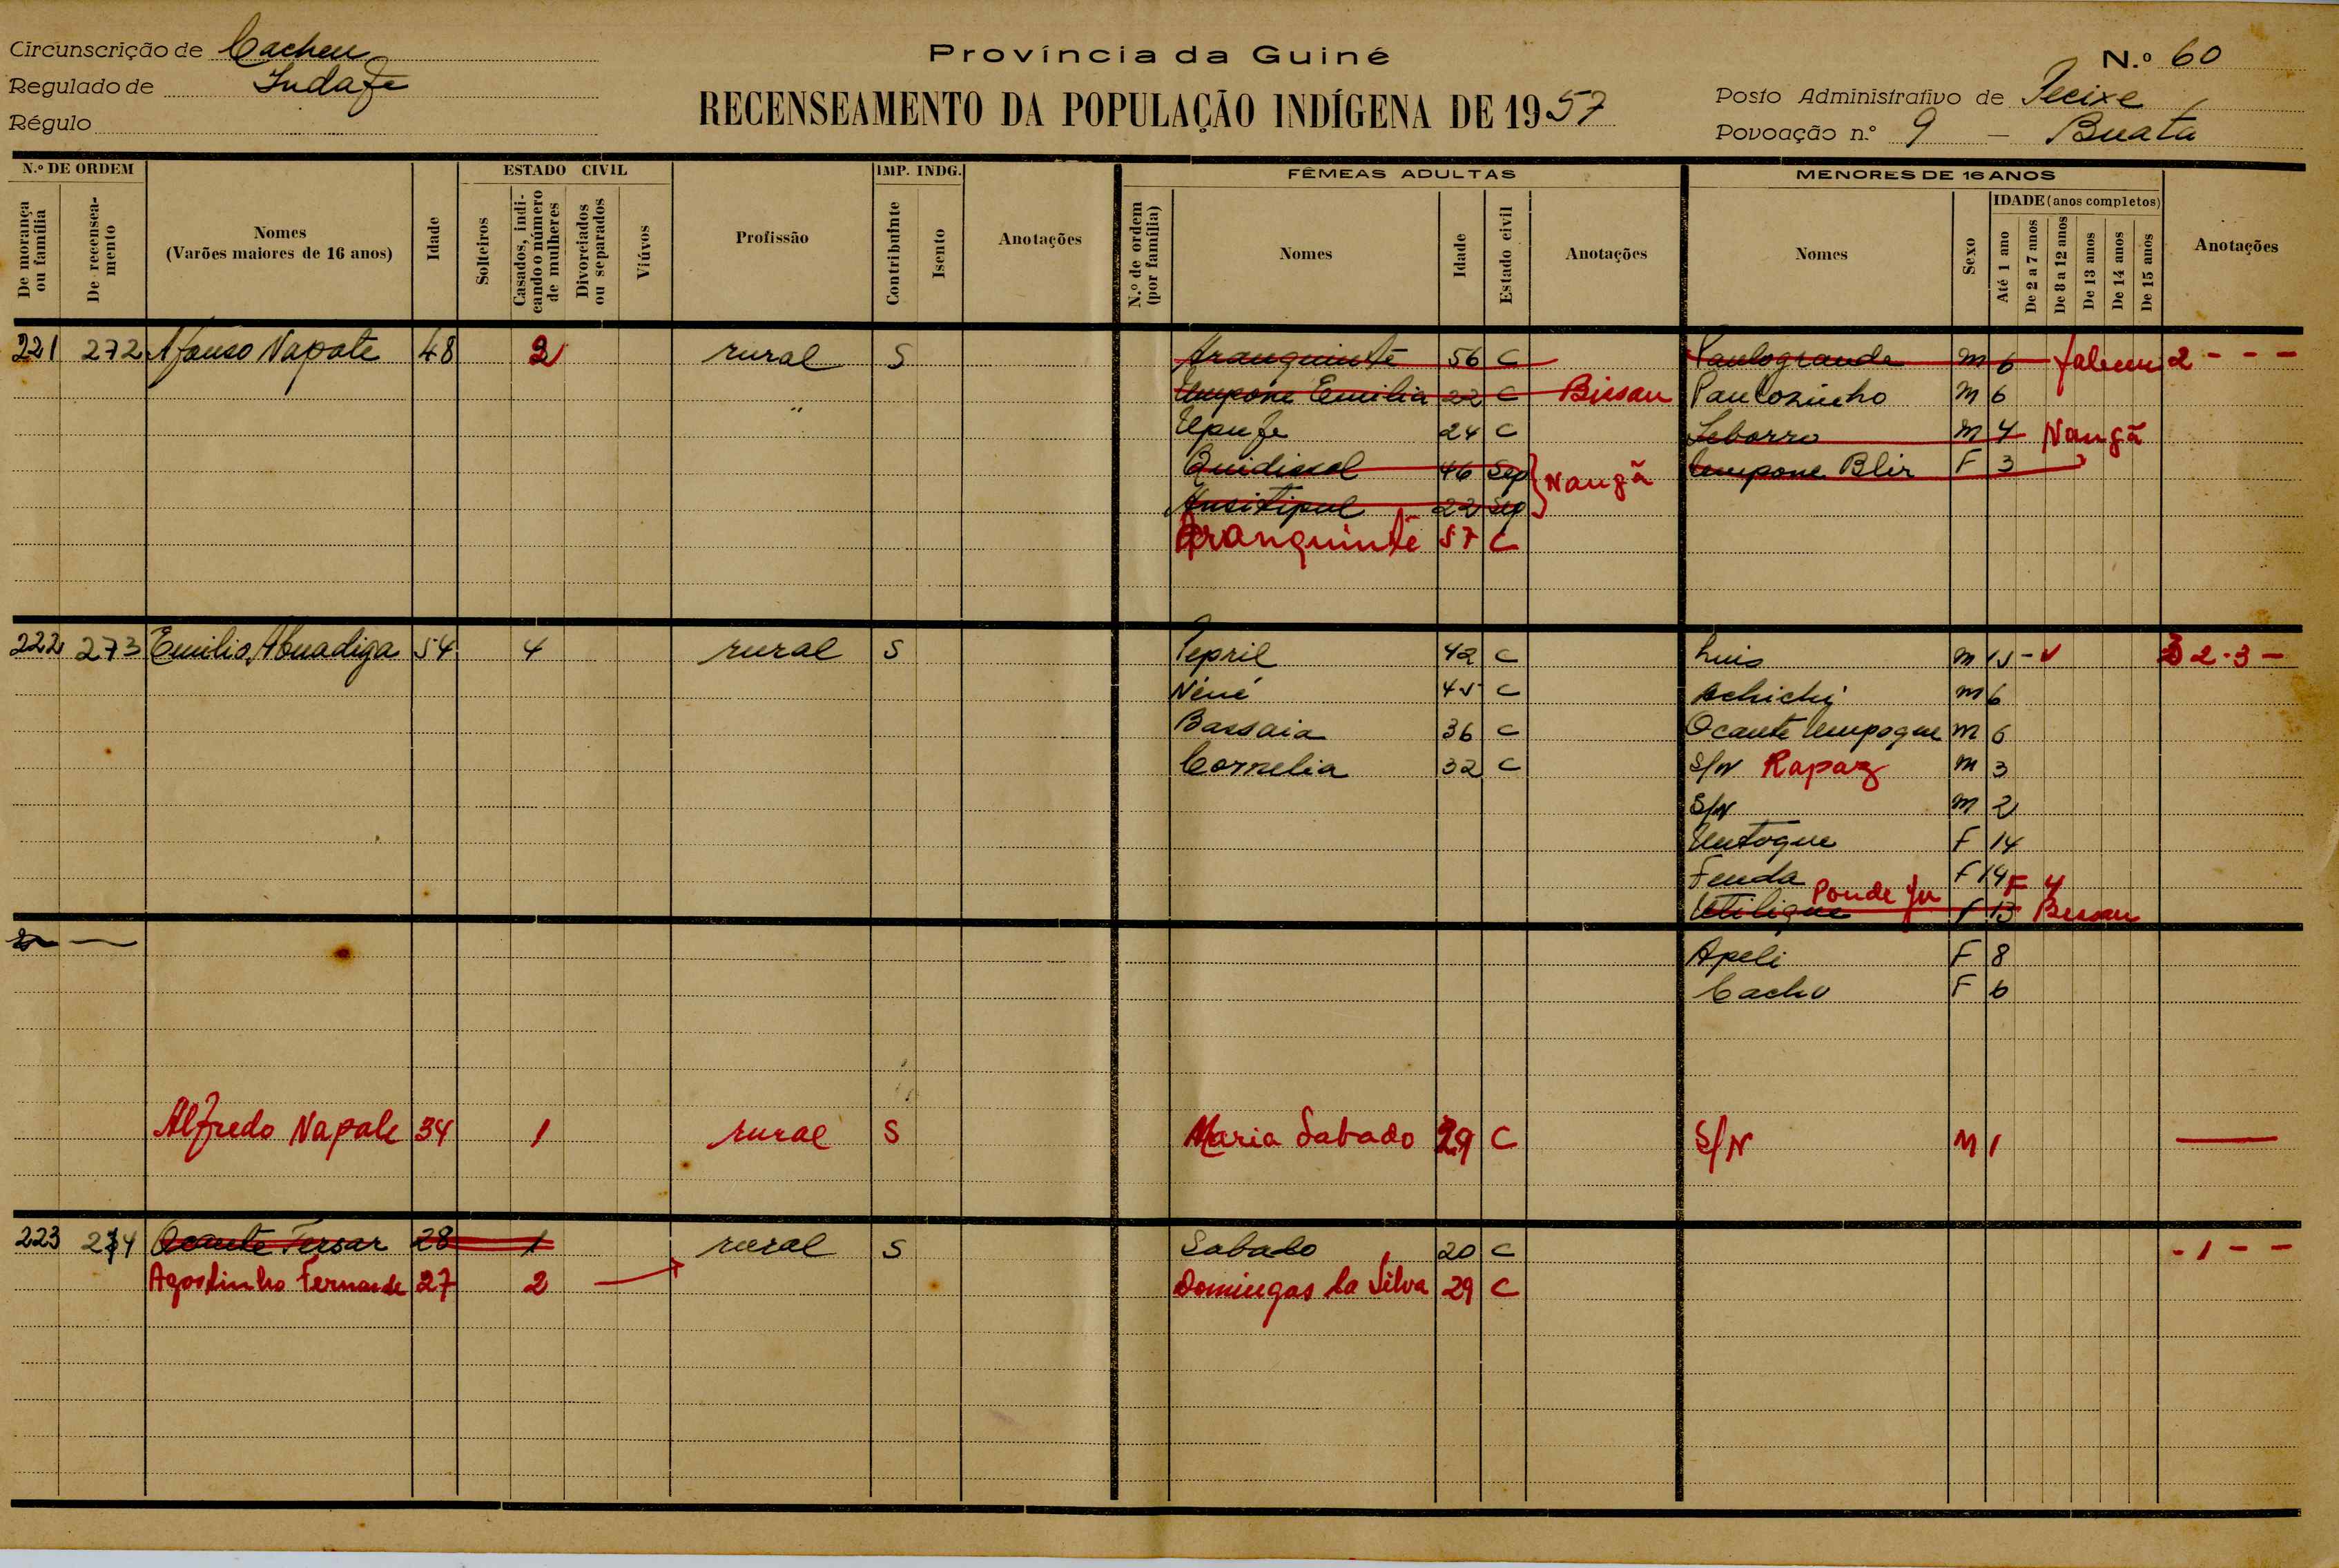 Circunscrição de Cacheu
Província da Guiné
N.º 60
Regulado de Indafe
RECENSEAMENTO DA POPULAÇÃO INDÍGENA DE 1957
Posto Administrativo de Pecixe
Régulo
Povoação n.º 9 — Buatá
N.º DE ORDEM
ESTADO CIVIL
IMP. INDG.
FÊMEAS ADULTAS
MENORES DE 16 ANOS
De morança ou família
De recenseamento
Nomes (Varões maiores de 16 anos)
Idade
Solteiros
Casados, indicando o número de mulheres
Divorciados ou separados
Viúvos
Profissão
Contribuinte
Isento
Anotações
N.º de ordem (por família)
Nomes
Idade
Estado civil
Anotações
Nomes
Sexo
IDADE (anos completos)
Até 1 ano
De 2 a 7 anos
De 8 a 12 anos
De 13 anos
De 14 anos
De 15 anos
Anotações
221 272 Afonso Napate 48 2 rural S Aranquintê 56 C Paulogrande M 6 2 - - -
" Umpone Emilia 22 C Bissau Paulozinho M 6
Upufe 24 C Leborro M 4 Nangã
Quidissol 46 Sep Nangã Umpone Blir F 3
Ansitipul 22 Sep
Aranquintê 57 C
222 273 Emilio Abuadiga 54 4 rural S Pepril 42 C Luis M 15 - 2 - 3 -
Néné 45 C Achichi M 6
Bassaia 36 C Ocante Umpoque M 6
Cornelia 32 C S/N Rapaz M 3
S/N M 2
Untoque F 14
Fenda F 14
Ponde F 4
Utilique F 13 Bissau
Apeli F 8
Cacho F 6
Alfredo Napale 34 1 rural S Maria Sabado 29 C S/N M 1 —
223 274 Ocante Fersar 28 1 rural S Sabado 20 C - 1 - -
Agostinho Fernande 27 2 Domingas da Silva 29 C